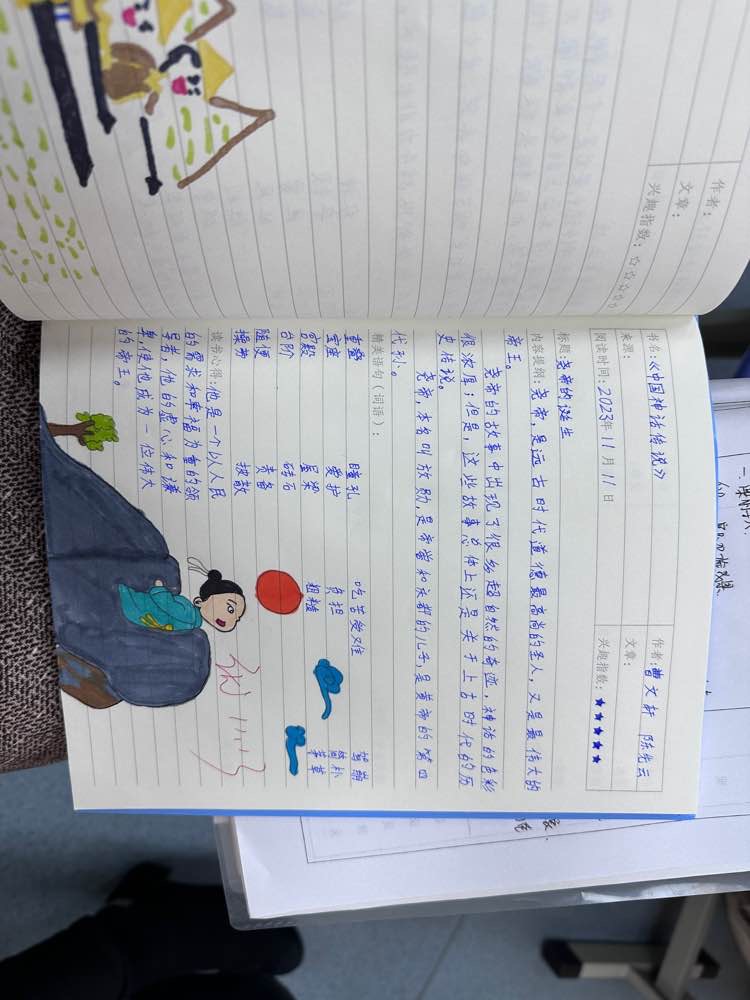 作者：
文章：
兴趣指数：☆☆☆☆
书名：《中国神话传说》
作者：曹文轩 陈先云
来源：
文章：
阅读时间：2023年11月11日
兴趣指数：★★★★★
标题：尧帝的诞生
内容提纲：尧帝，是远古时代道德最高尚的圣人，又是最伟大的
帝王。
尧帝的故事中出现了很多超自然的奇迹，神话的色彩
很浓厚；但是，这些故事总体上还是关于上古时代的历
史传说。
尧帝，本名叫放勋，是帝喾和庆都的儿子，是黄帝的第四
代孙。
精美语句（词语）：
重叠 瞳孔 吃苦受难
室 爱护 负担
宫殿 屋梁 粗糙 补
台阶 砖石 茅草
随便 责备
操劳 披散
读书心得：他是一个以人民
的需求和幸福为重的领
导者，他的虚心和谦
卑，使他成为一位伟大
的帝王。